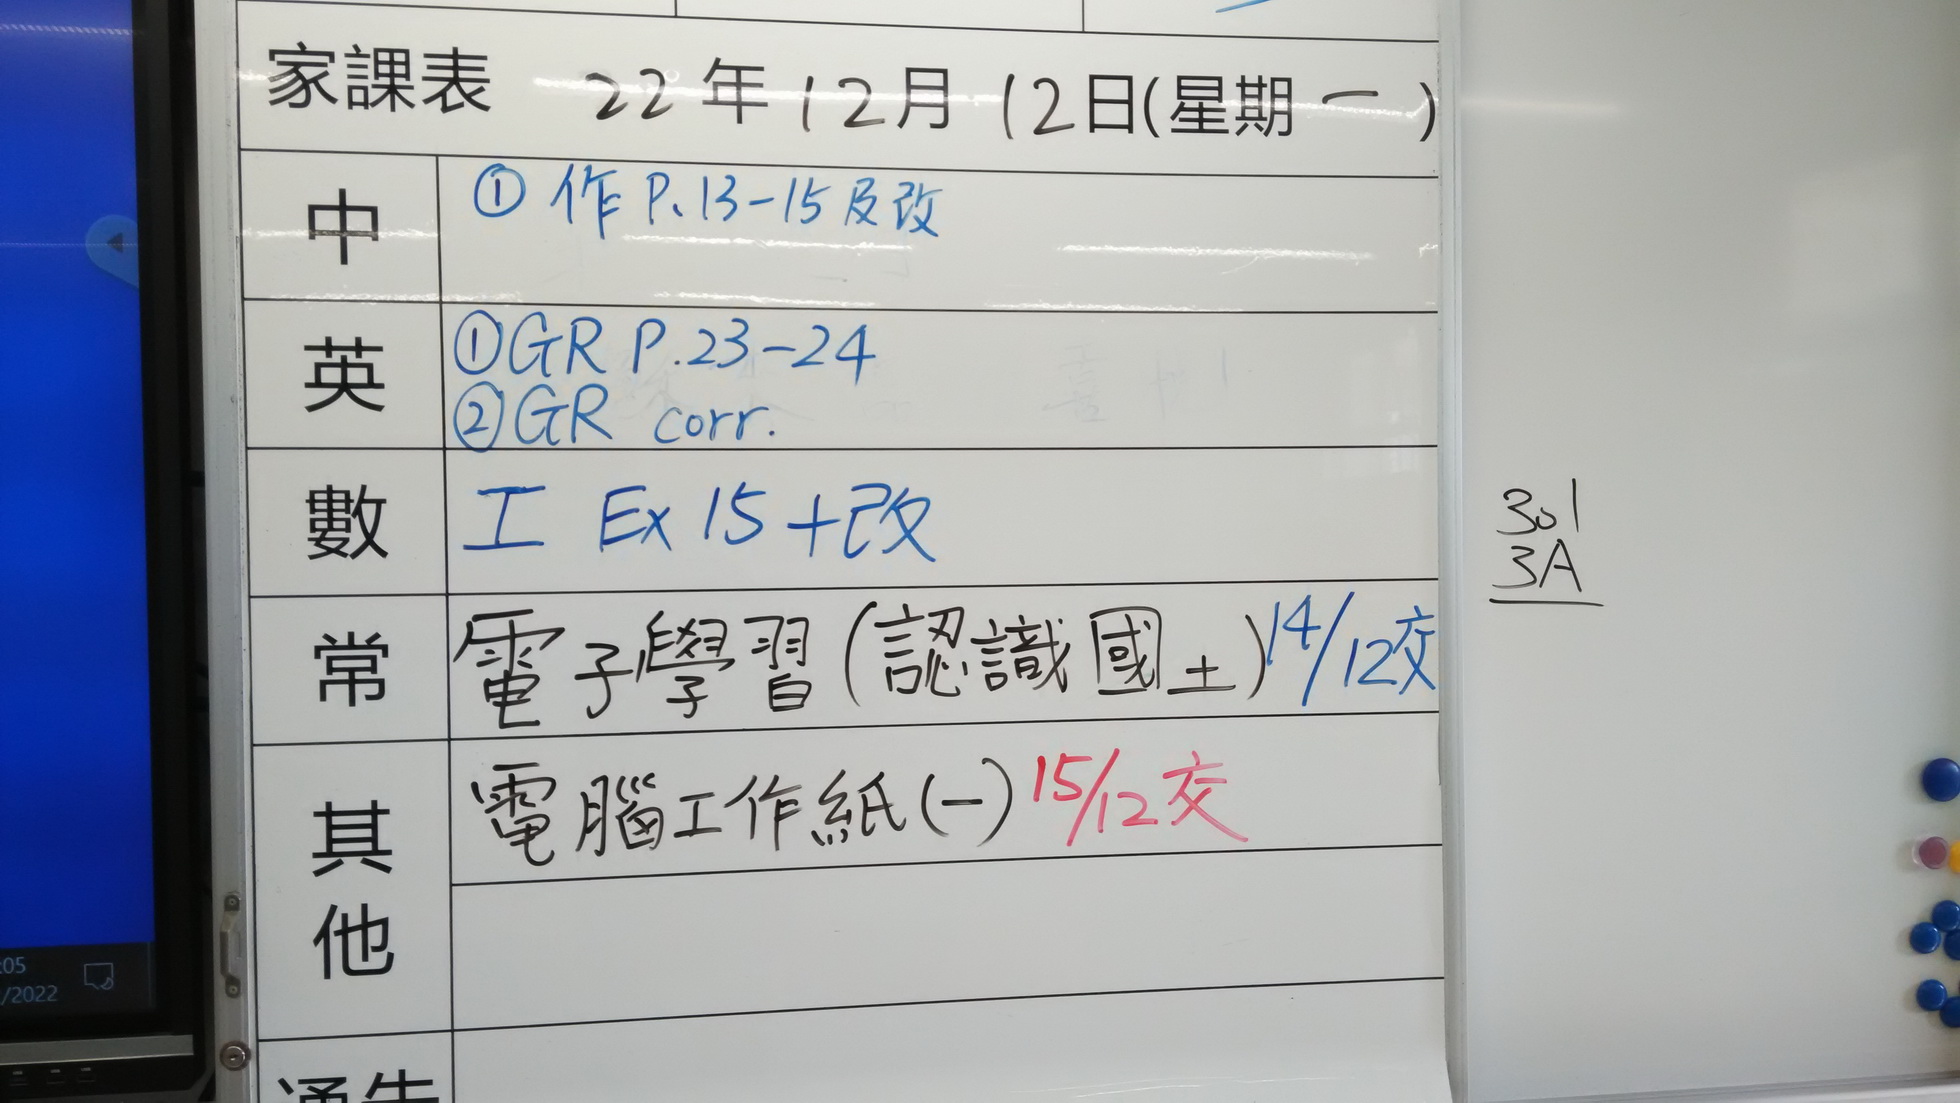 家課表 22年12月12日(星期一)
中
① 作 P.13-15 及改
英
①GR P.23-24
②GR corr.
數
工 Ex 15+改
常
電子學習(認識國土)14/12交
其他
電腦工作紙(一)15/12交
通告
301
3A
:05
/2022